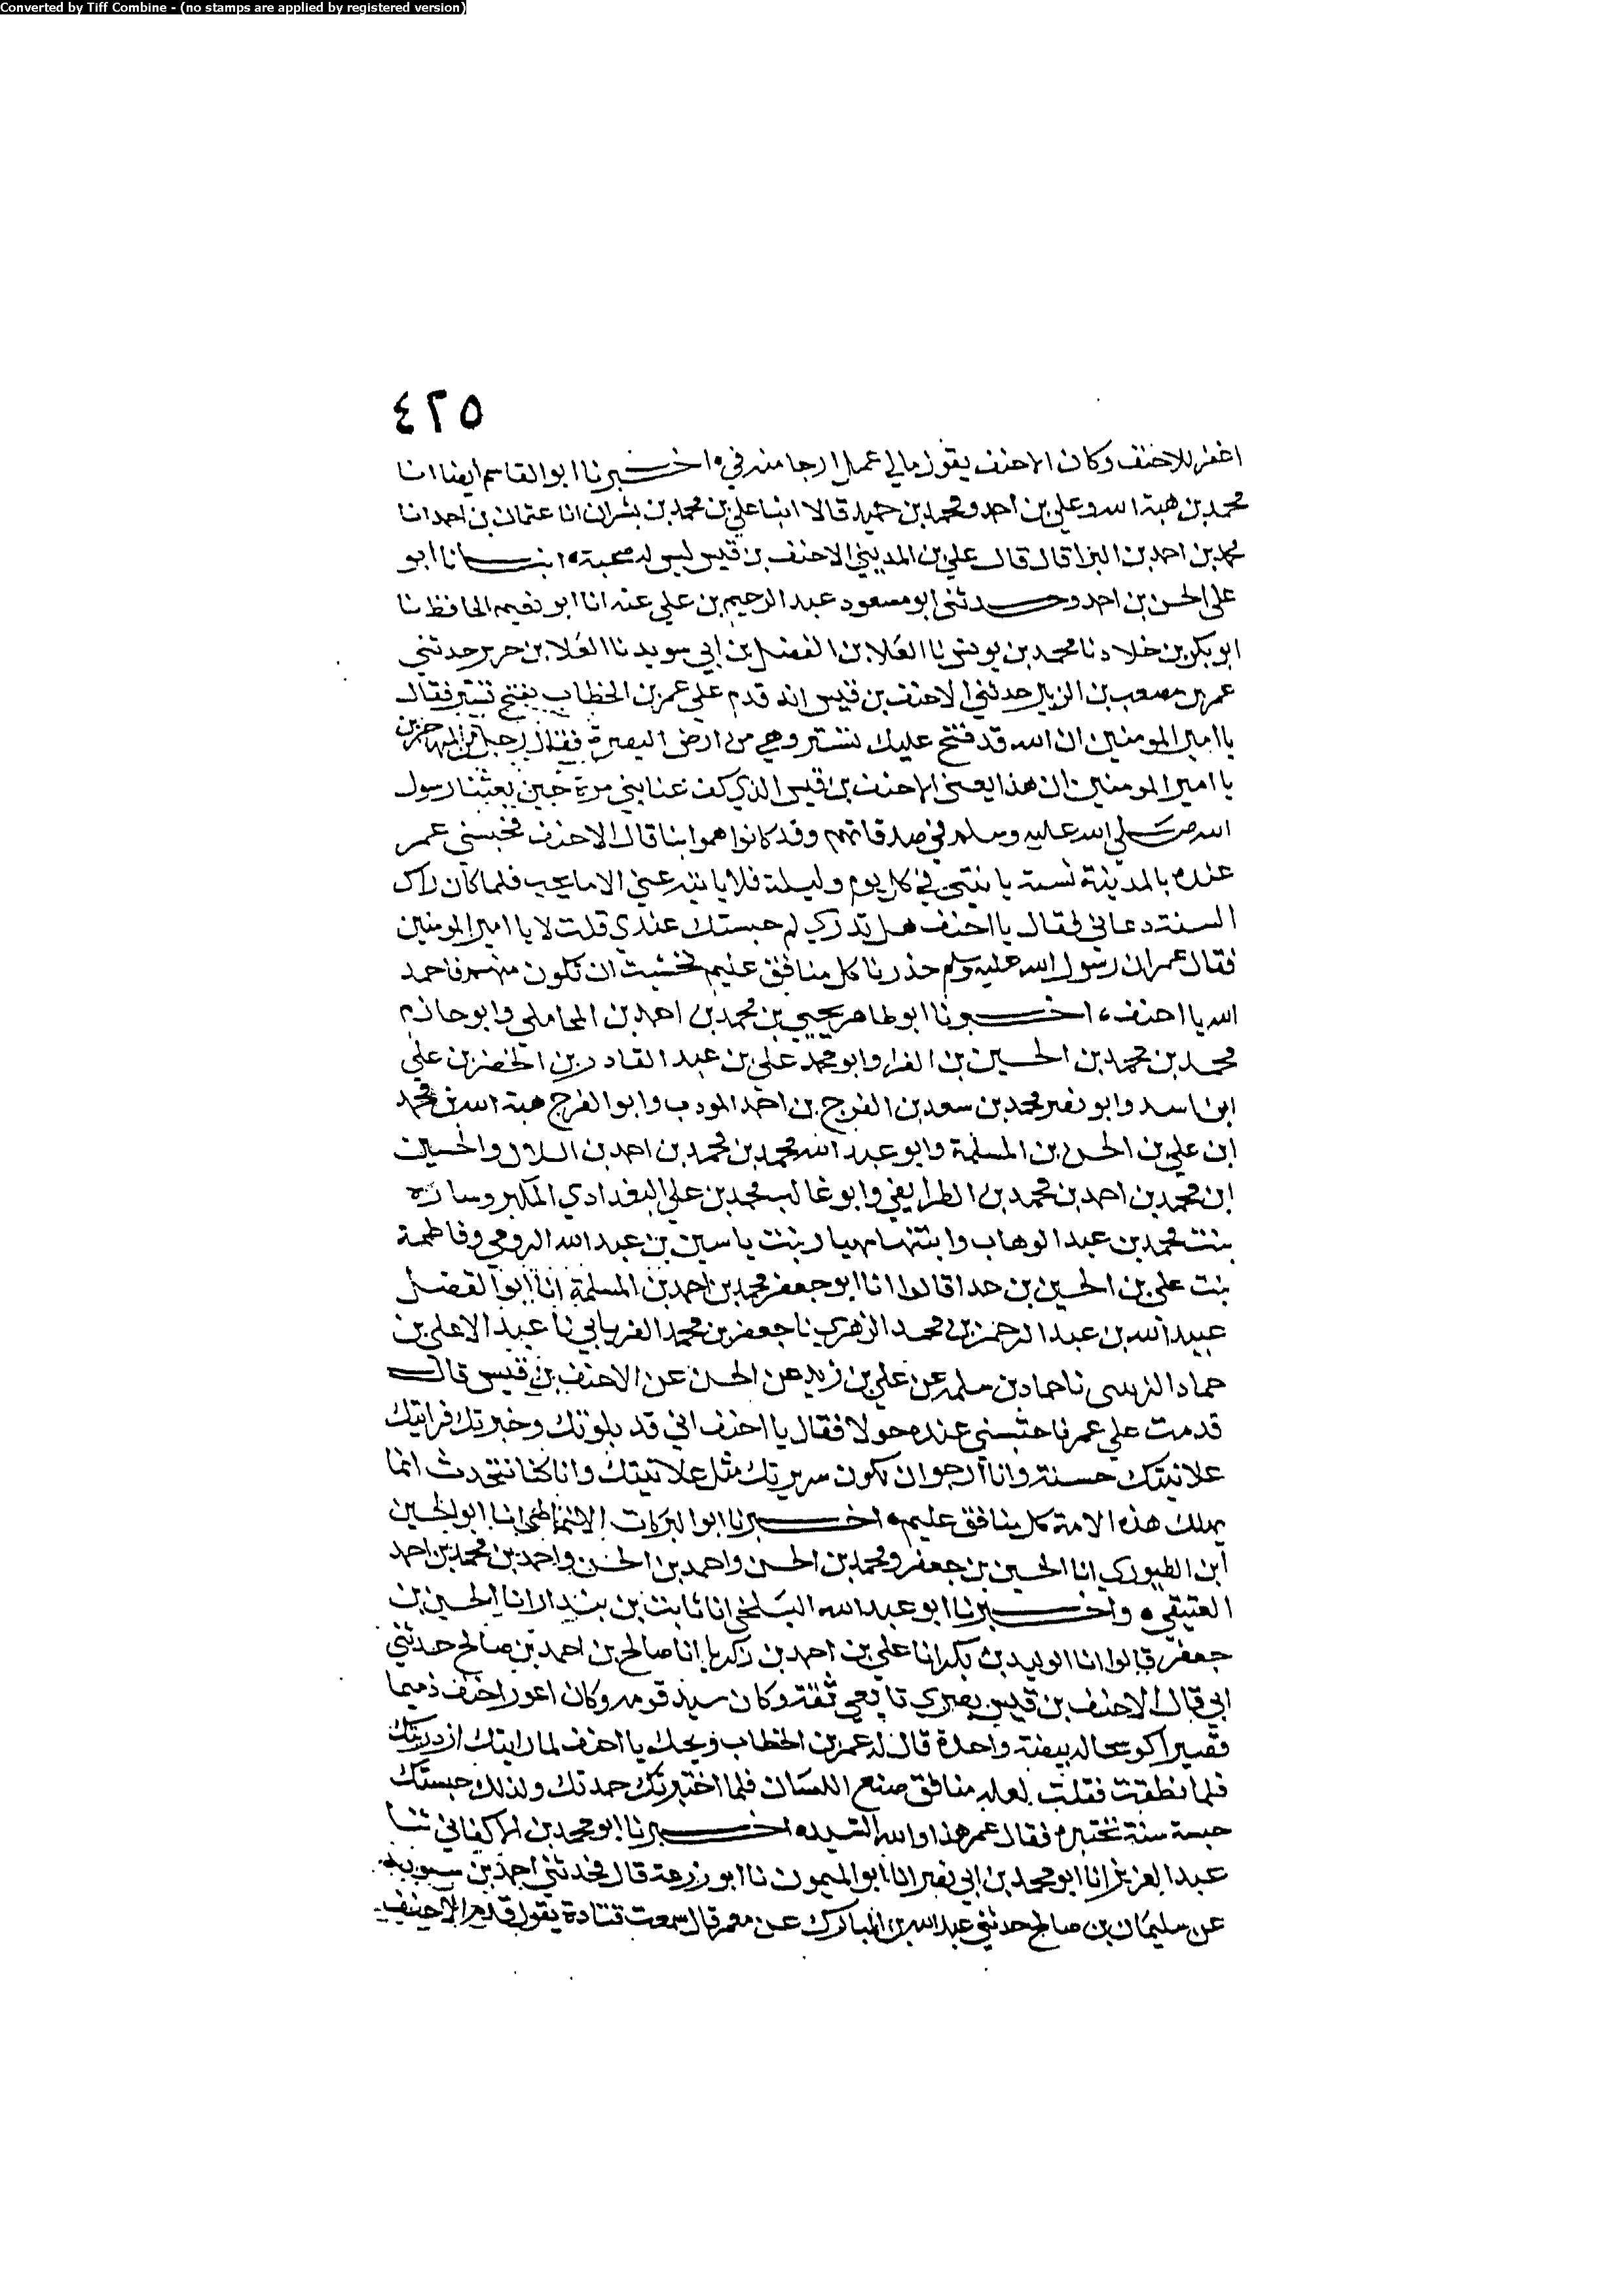 Converted by Tiff Combine - (no stamps are applied by registered version)
٤٢٥
اغفر للاحنف وكان الاحنف يقول مالي عمل ارجا منه في اخبرنا ابو القاسم ايضا انا
محمد بن هبة الله وعلي بن احمد ومحمد بن حميد قالا انبا علي بن محمد بن بشران انا عثمان بن احمد انا
محمد بن احمد بن البرا قال قال علي بن المديني الاحنف بن قيس ليس له صحبة انبانا ابو
علي الحسن بن احمد وحدثني ابو مسعود عبد الرحيم بن علي عنه انا ابو نعيم الحافظ نا
ابو بكر بن خلاد نا محمد بن يونس نا العلا بن الفضل بن ابي سويد نا العلا بن حرير حدثني
عمر بن مصعب بن الزبير حدثني الاحنف بن قيس انه قدم علي عمر بن الخطاب بفتح تستر فقال
يا امير المومنين ان الله قد فتح عليك تستر وهي من ارض البصرة فقال رجل من المهاجرين
يا امير المومنين ان هذا يعني الاحنف بن قيس الذي كف عنا بني مرة حين بعثنا رسول
الله صلي الله عليه وسلم في صدقاتهم وقد كانوا هموا بنا قال الاحنف فحبسني عمر
عنده بالمدينة سنة ياتيني في كل يوم وليلة فلا ياتيه عني الا ما يحب فلما كان راس
السنة دعاني فقال يا احنف هل تدري لم حبستك عندي قلت لا يا امير المومنين
فقال عمر ان رسول الله عليه وسلم حذرنا كل منافق عليم فخشيت ان تكون منهم فاحمد
الله يا احنف اخبرنا ابو طاهر يحيي بن محمد بن احمد بن المحاملي وابو حازم
محمد بن محمد بن الحسين بن الفرا وابو محمد علي بن عبد القادر بن الخضر بن علي
ابن اسد وابو نصر محمد بن سعد بن الفرج بن احمد المودب وابو الفرج هبة الله بن محمد
ابن علي بن الحسن بن المسلمة وابو عبد الله محمد بن محمد بن احمد بن السلال والحسين
ابن محمد بن احمد بن محمد بن الطرايفي وابو غالب محمد بن علي البغدادي المكبر وساره
بنت محمد بن عبد الوهاب وابنتها مهيار بنت ياسين بن عبد الله الرومي وفاطمة
بنت علي بن الحسين بن جدا قالوا انا ابو جعفر محمد بن احمد بن المسلمة انا ابو الفضل
عبيد الله بن عبد الرحمن بن محمد الزهري نا جعفر بن محمد الفريابي نا عبد الاعلي بن
حماد النرسي نا حماد بن سلمه عن علي بن زيد عن الحسن عن الاحنف بن قيس قال
قدمت علي عمر فاحتبسني عنده حولا فقال يا احنف اني قد بلوتك وخبرتك فرايتك
علانيتك حسنة وانا ارجوا ان تكون سريرتك مثل علانيتك وانا كنا نتحدث انما
يهلك هذه الامة كل منافق عليم اخبرنا ابو البركات الانماطي انا ابو الحسين
ابن الطيوري انا الحسين بن جعفر ومحمد بن الحسن واحمد بن الحسن واحمد بن محمد بن احمد
العتيقي واخبرنا ابو عبد الله البلخي انا ثابت بن بندار انا الحسين بن
جعفر قالوا انا الوليد بن بكر انا علي بن احمد بن زكريا انا صالح بن احمد بن صالح حدثني
ابي قال الاحنف بن قيس بصري تابعي ثقة وكان سيد قومه وكان اعور احنف ذميما
قصيرا كوسجا له بيضة واحدة قال له عمر بن الخطاب ويحك يا احنف لما رايتك ازدريتك
فلما نطقت فقلت لعله منافق صنع اللسان فلما اختبرتك حمدتك ولذلك حبستك
حبسه سنة يختبره فقال عمر هذا والله السيد اخبرنا ابو محمد بن الاكفاني ثنا
عبد العزيز انا ابو محمد بن ابي نصر انا ابو الميمون نا ابو زرعة قال فحدثني احمد بن شبويه
عن سليمان بن صالح حدثني عبد الله بن المبارك عن معمر قال سمعت قتادة يقول قدم الاحنف